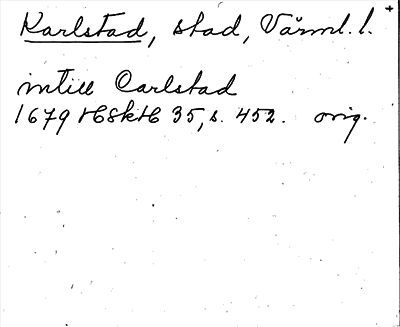 Karlstad, stad, Värml. l. +
intill Carlstad
1679 HSkH 35, s. 452. orig.